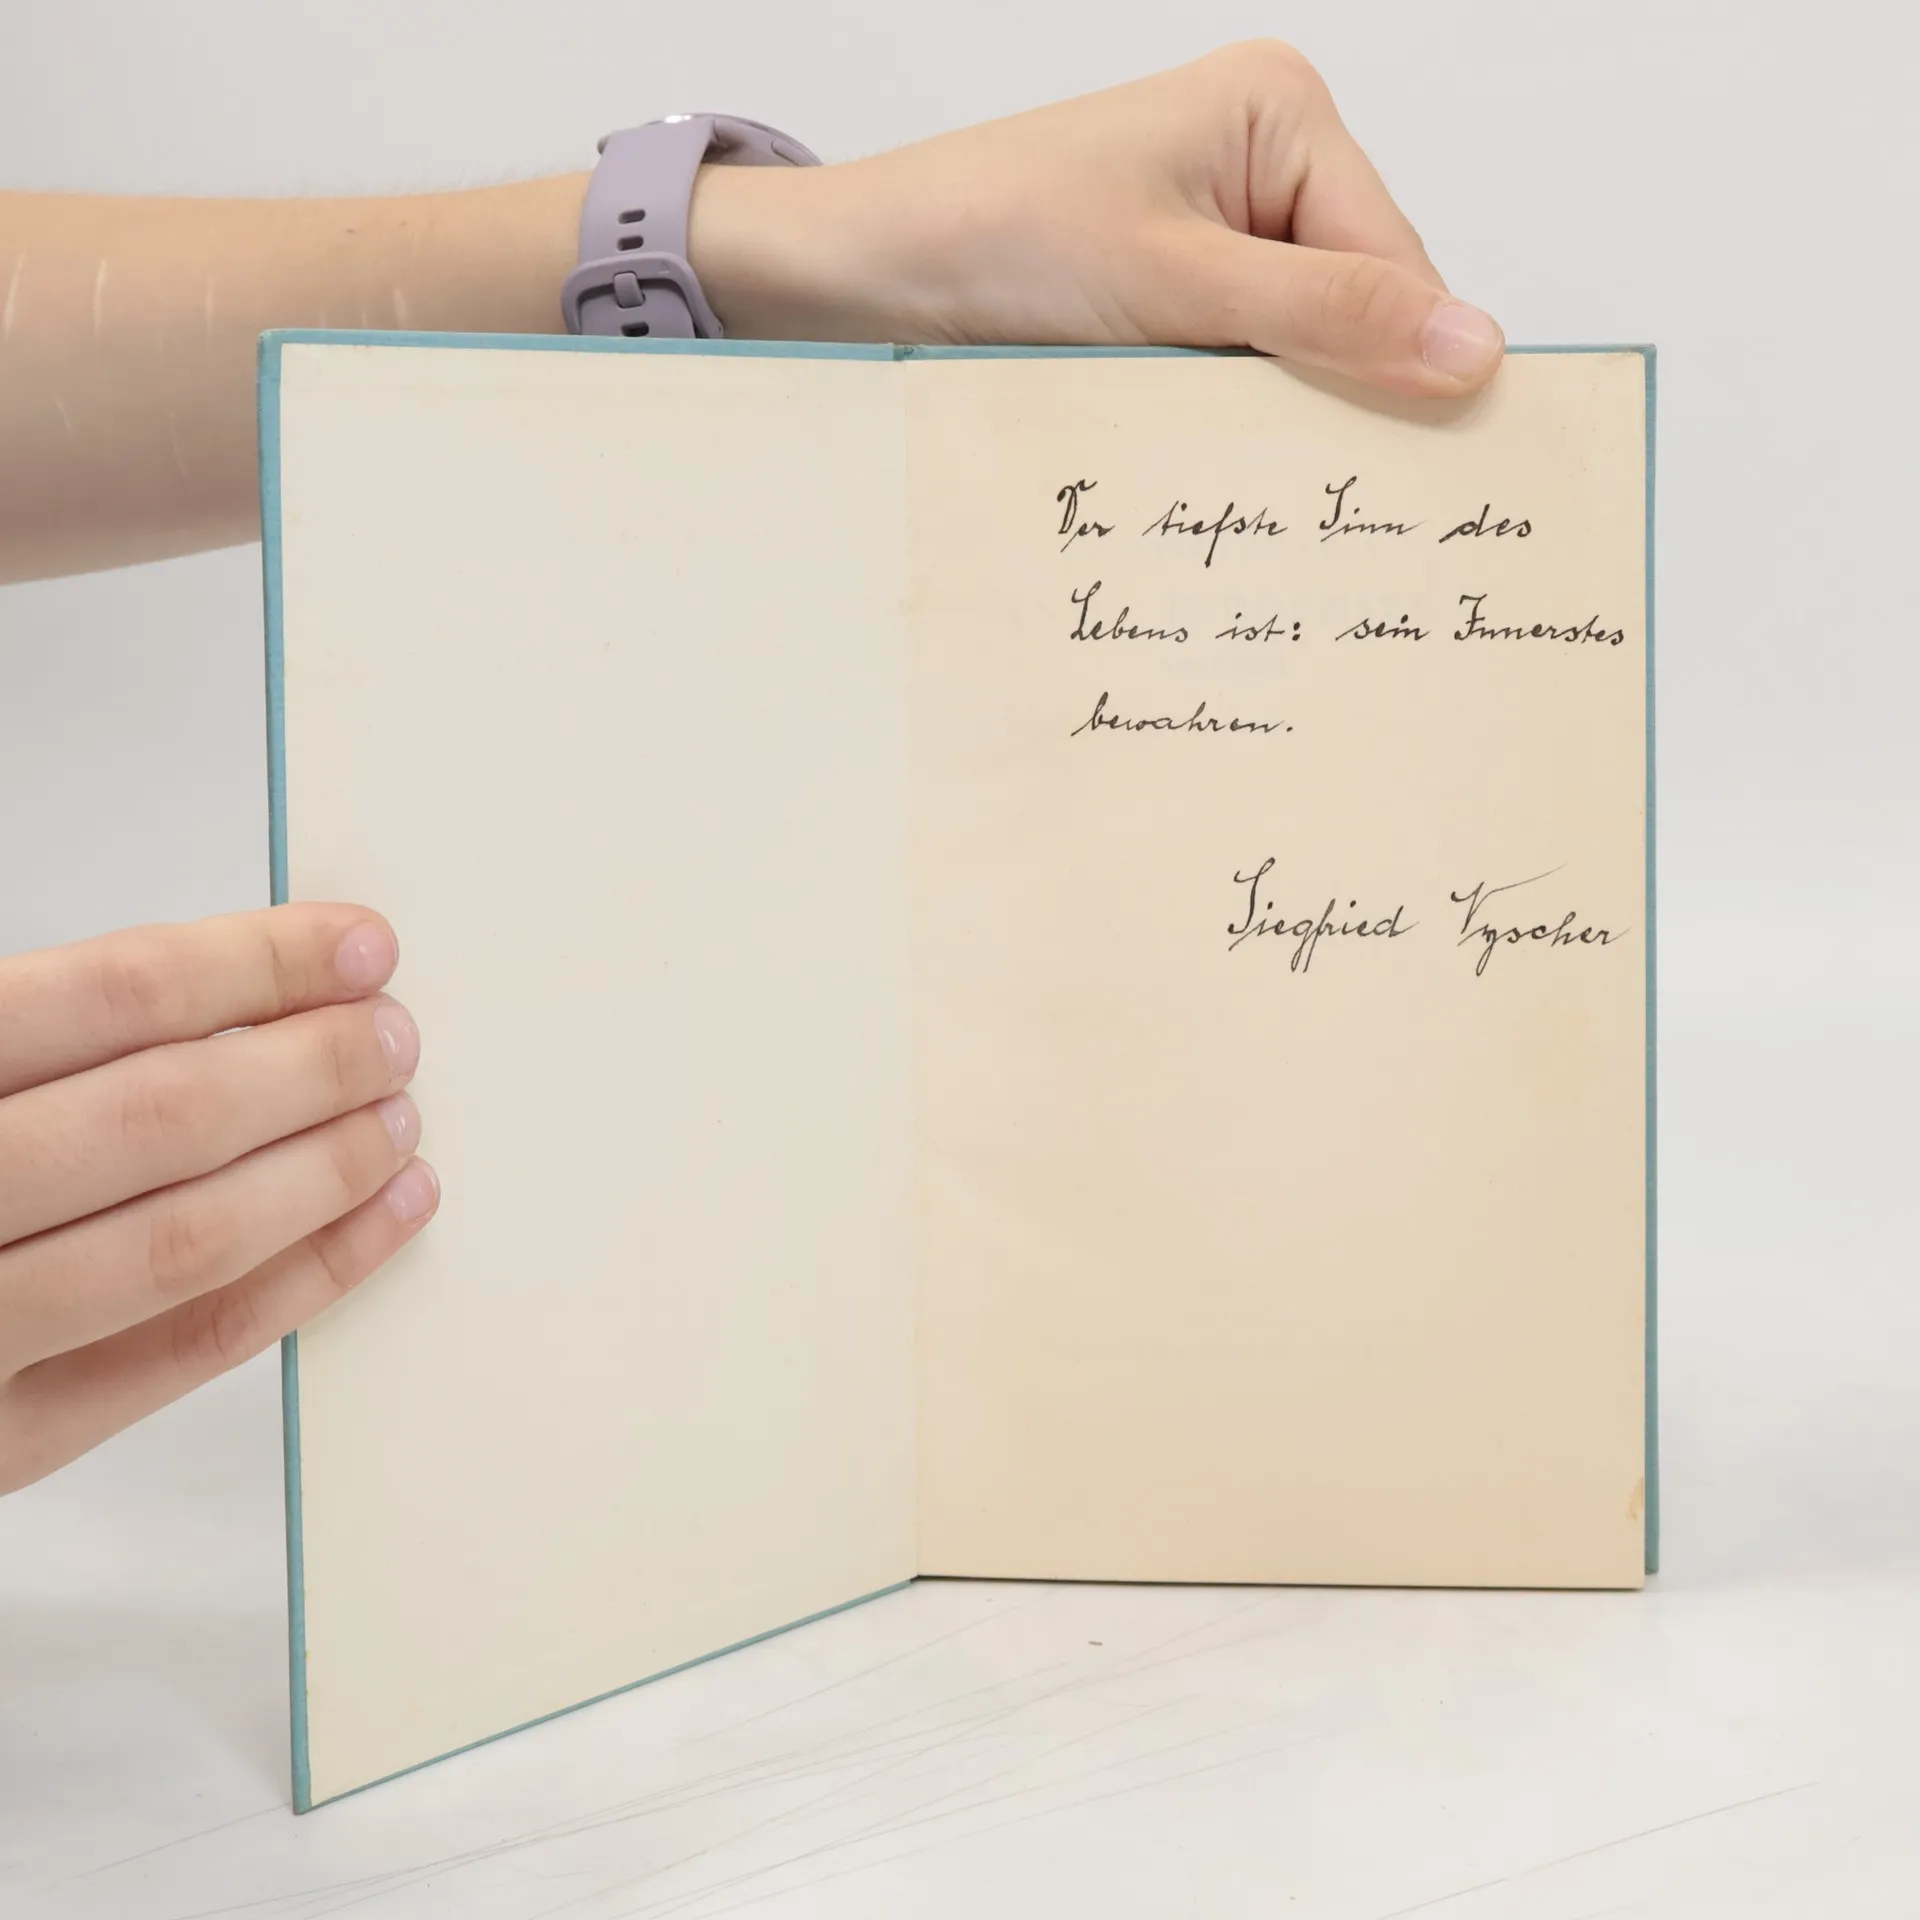 Der tiefste Sinn des
Lebens ist: sein Innerstes
bewahren.
Siegfried Vyscher